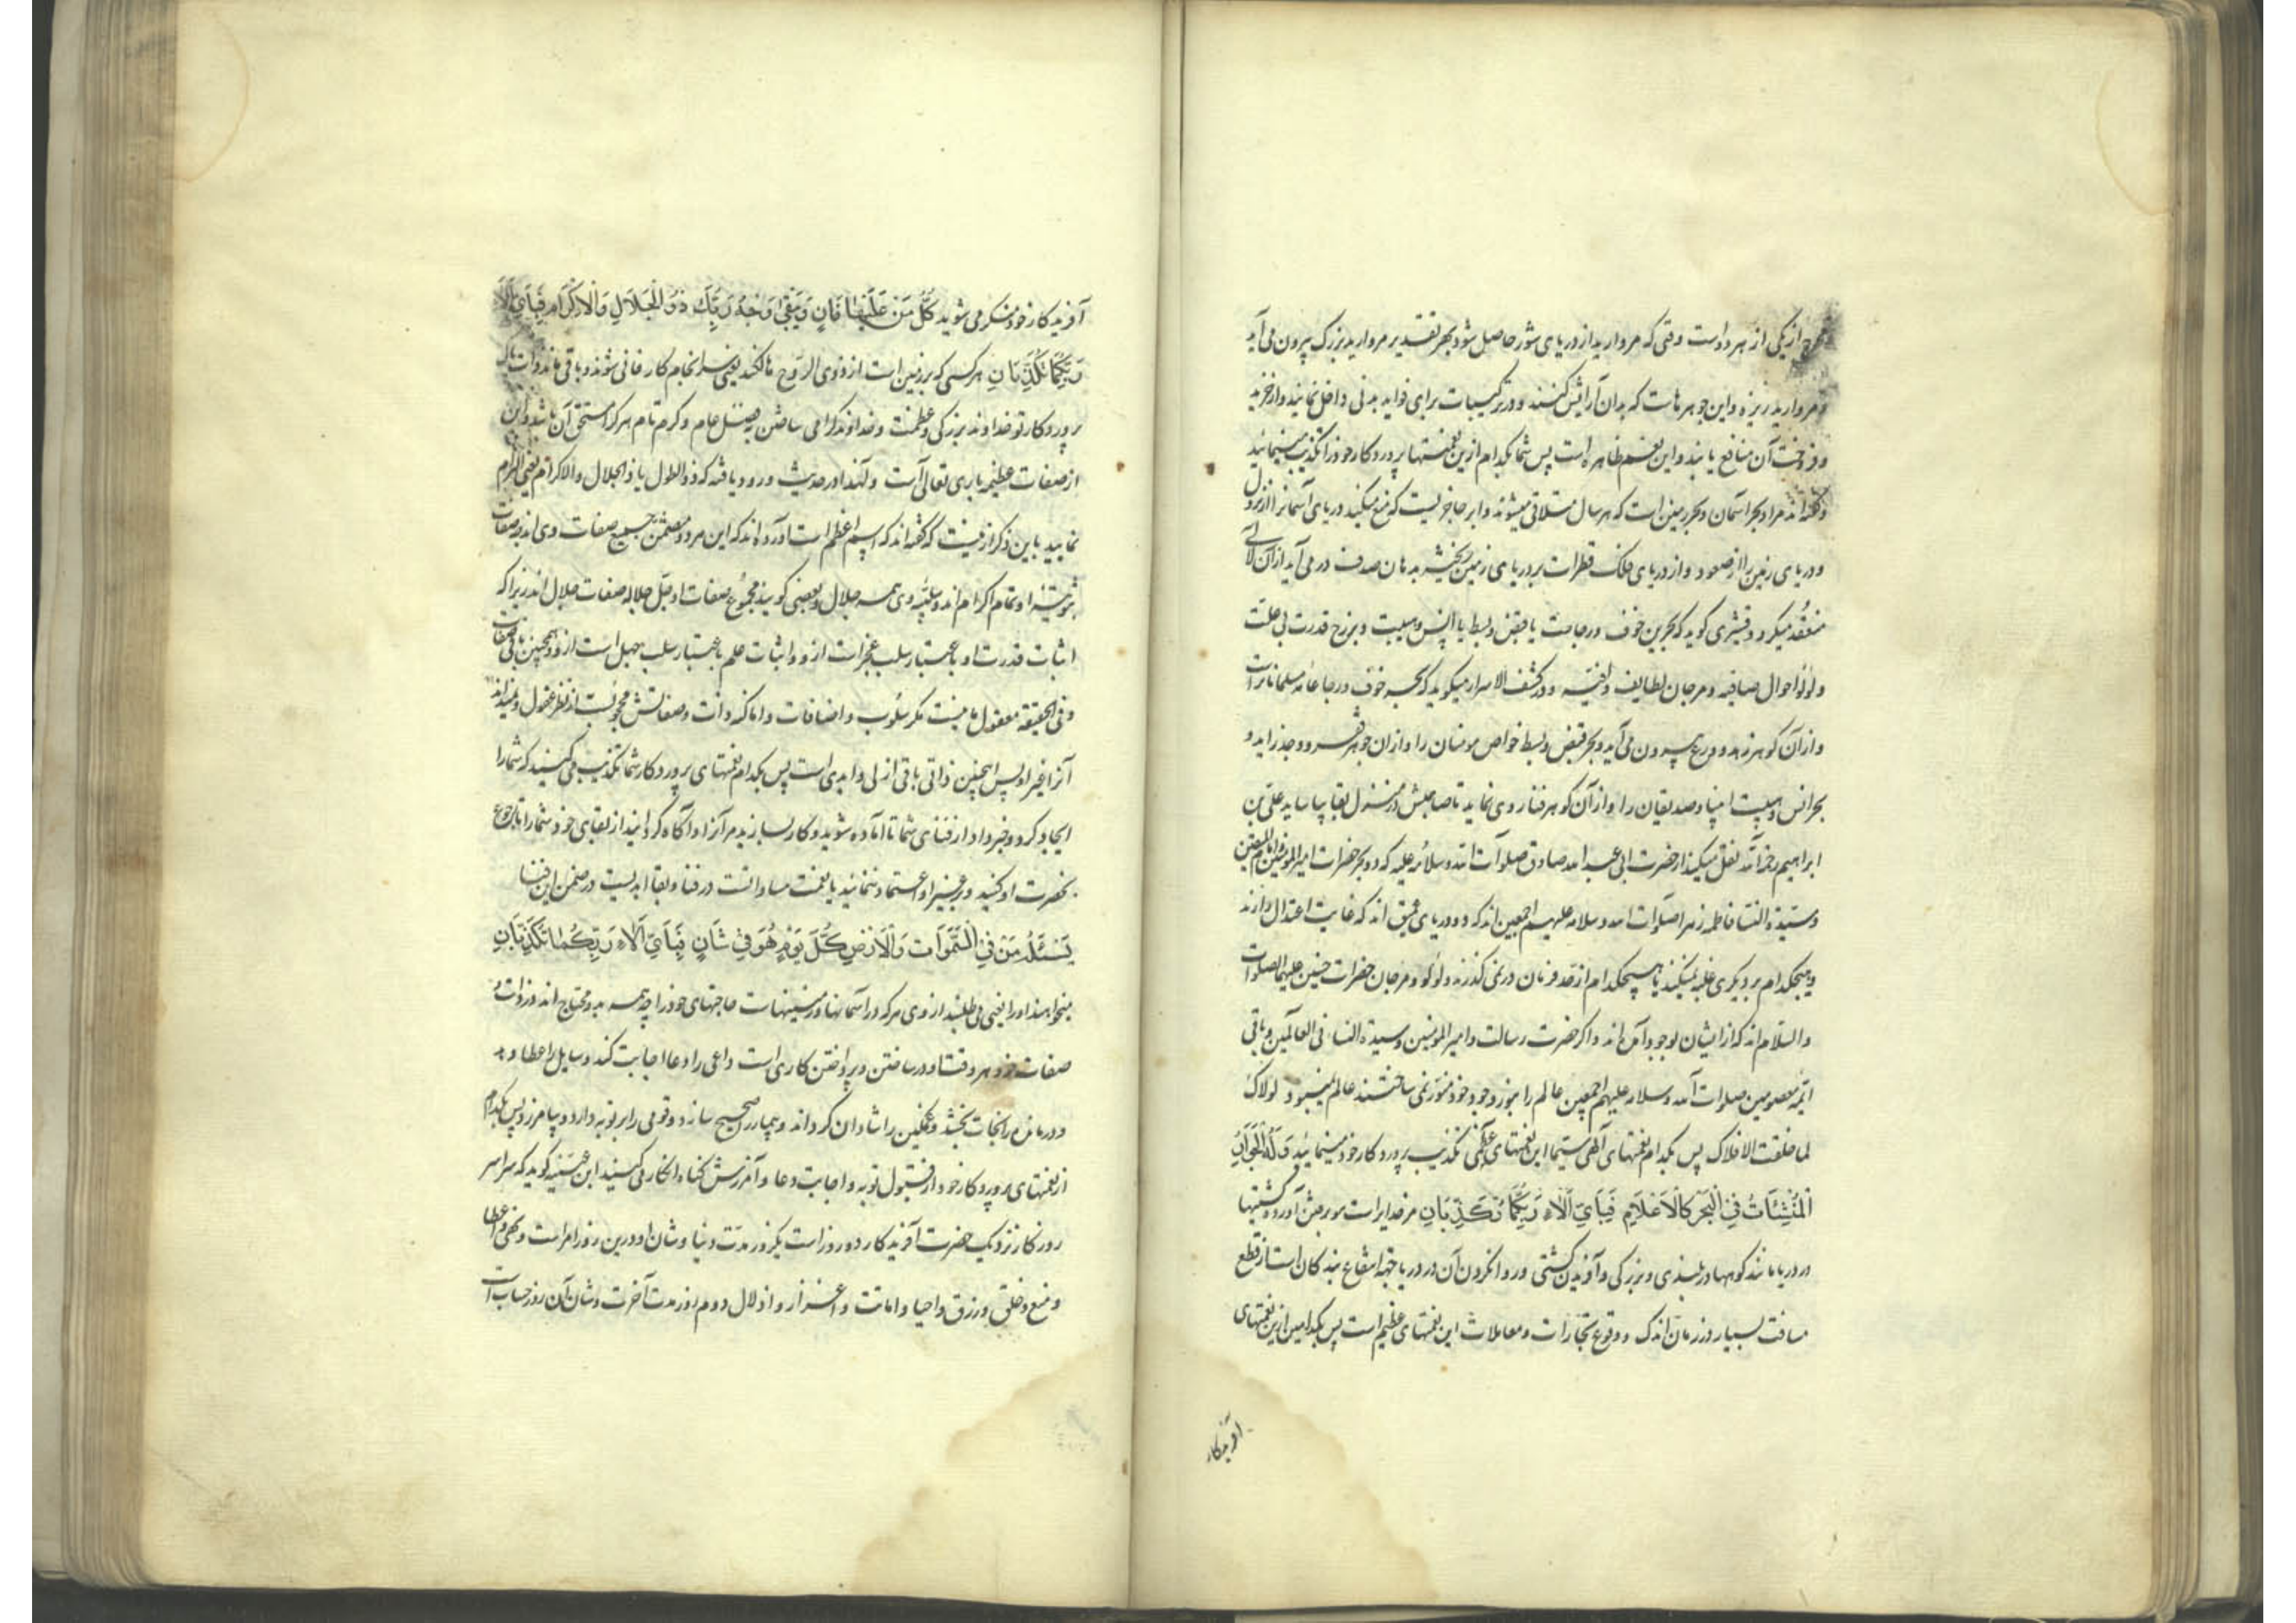 مخرج از یکی از هر دو است وقتی که مروارید از دریای شور حاصل شود بهر تقدیر مروارید بزرگ بیرون می آید
و مروارید ریزه و این جوهرهاست که بدان آرایش کنند و در ترکیبات برای فواید بدنی داخل نمایند و از خرید
و فروخت آن منافع یابند و این نعم ظاهره است پس شما بکدام ازین نعمتها پروردکار خود را تکذیب مینمائید
و گفته اند مراد بحر آسمان و بحر زمین است که هر سال متلاقی میشوند و ابر حاجزیست که منع میکند دریای آسمانرا از نزول
و دریای زمین را از صعود و از دریای فلک قطرات بر دریای زمین ریخته بدهان صدف در می آید از آن لآلی
منعقد میکردد و قشیری کوید که بحرین خوف و رجاست یا قبض و بسط یا انس و هیبت و برزخ قدرت بی علت
و لؤلؤ احوال صافیه و مرجان لطایف وافیه و در کشف الاسرار میکوید که بحر خوف و رجا عامه مسلمانانراست
و از آن کوهر زهد و ورع بیرون می آید و بحر قبض و بسط خواص مومنان را و از ان جوهر فقر و وجد زاید و
بحر انس و هیبت انبیا و صدیقان را و از آن کوهر فنا روی نماید تا صاحبش در منزل بقا بیاساید علی بن
ابراهیم رحمه الله نقل میکند از حضرت ابی عبد الله صادق صلوات الله و سلامه علیه که دو بحر حضرات امیر المومنین و امام المتقین
و سیدة النسا فاطمه زهرا صلوات الله و سلامه علیهم اجمعین اند که دو دریای عمیق اند که غایت اعتدال دارند
و هیچکدام بر دیکری غلبه نمیکنند یا هیچکدام از قد فرمان در نمی گذرند و لؤلؤ و مرجان حضرات حسنین علیهما الصلوات
والسلام اند که از ایشان بوجود آمده اند و اکر حضرت رسالت و امیر المومنین و سیدة النسا فی العالمین و باقی
ائمه معصومین صلوات الله و سلامه علیهم اجمعین عالم را بنور وجود خود منور نمی ساختند عالم نمیبود لولاک
لما خلقت الافلاک پس بکدام نعمتهای آلهی سیما این نعمتهای عظمی تکذیب پروردکار خود مینمائید وَلَهُ الْجَوَارِ
الْمُنْشَئَاتُ فِي الْبَحْرِ كَالْاَعْلَامِ فَبِأَيِّ آلَاءِ رَبِّكُمَا تُكَذِّبَانِ مر خدایراست مر بعرش آورده کشتیها
در دریا مانند کوهها در بلندی و بزرکی و آفریدن کشتی و روانکردن آن در دریا جهة انتفاع بندکان است از قطع
مسافت بسیار در زمان اندک و وقوع تجارات و معاملات این نعمتهای عظیم است پس بکدامین ازین نعمتهای
آفریدکار
آفریدکار خود منکر می شوید كُلُّ مَنْ عَلَيْهَا فَانٍ وَيَبْقَىٰ وَجْهُ رَبِّكَ ذُو الْجَلَالِ وَالْاِكْرَامِ فَبِأَيِّ آلَاءِ
رَبِّكُمَا تُكَذِّبَانِ هر کسی که بر زمین است از ذوی الروح هالکند یعنی سرانجام کار فانی شوند و باقی ماند ذات پاک
پروردکار تو خداوند بزرکی و عظمت و خداوند کرامی ساختن بفضل عام و کرم تام هر کرا مستحق آن باشد و این
از صفات عظیمه باری تعالی است و لهذا در حدیث ورود یافته که ذو الطول یا ذو الجلال والاکرام یعنی الزام
نمایید باین ذکر ازینست که گفته اند که اسم اعظم است آورده اند که این مرد و متضمن جمیع صفات وی اند و صفات
ثبوتیه او تمام اکرام اند و سلبیه وی همه جلال و بعضی کویند مجموع صفات او جل جلاله صفات جلال اند زیرا که
اثبات قدرت او باعتبار سلب عجز است ازو و اثبات علم باعتبار سلب جهل است ازو و همچنین باقی صفات
و فی الحقیقة معقول ما نیست مکر سلوب و اضافات و اما کنه ذات و صفاتش محجوبست از نظر عقول و نمیداند
آنرا غیر او پس اینچنین ذاتی باقی ازلی و ابدی است پس بکدام نعمتهای پروردکار شما تکذیب می کنید که شما را
ایجاد کرد و خبر داد از فنای شما تا آماده شوید و کار بسازید مر آنرا و آگاه کردانید از بقای خود شما را تا رجوع
بحضرت او کنید و بر غیر او اعتماد ننمائید یا نعمت مساواتست در فنا و بقا ابدیست در ضمن این فنا
يَسْئَلُهُ مَنْ فِي السَّمَوَاتِ وَالْاَرْضِ كُلَّ يَوْمٍ هُوَ فِي شَانٍ فَبِأَيِّ آلَاءِ رَبِّكُمَا تُكَذِّبَانِ
میخواهند او را یعنی می طلبند از وی هر که در آسمانها و زمینهاست حاجتهای خود را چه همه بدو محتاج اند در ذات و
صفات خود هر وقت او در ساختن و پرداختن کاری است داعی را دعا اجابت کند و سایل را عطا دهد
و درمانده را نجات بخشد و غمکین را شادان کرداند و بیمار را صحیح سازد و قومی را بر توبه دارد و بیامرزد پس بکدام
از نعمتهای پروردکار خود از قبول توبه و اجابت دعا و آمرزش کناه انکار می کنید ابن عیینه کوید که سراسر
روزکار نزدیک حضرت آفریدکار دو روز است یکروز مدت دنیا و شان او درین روز امر است و نهی و اعطا
و منع و خلق و رزق و احیا و اماتت و اعزاز و اذلال دوم روز مدت آخرت و شان آن روز حساب است